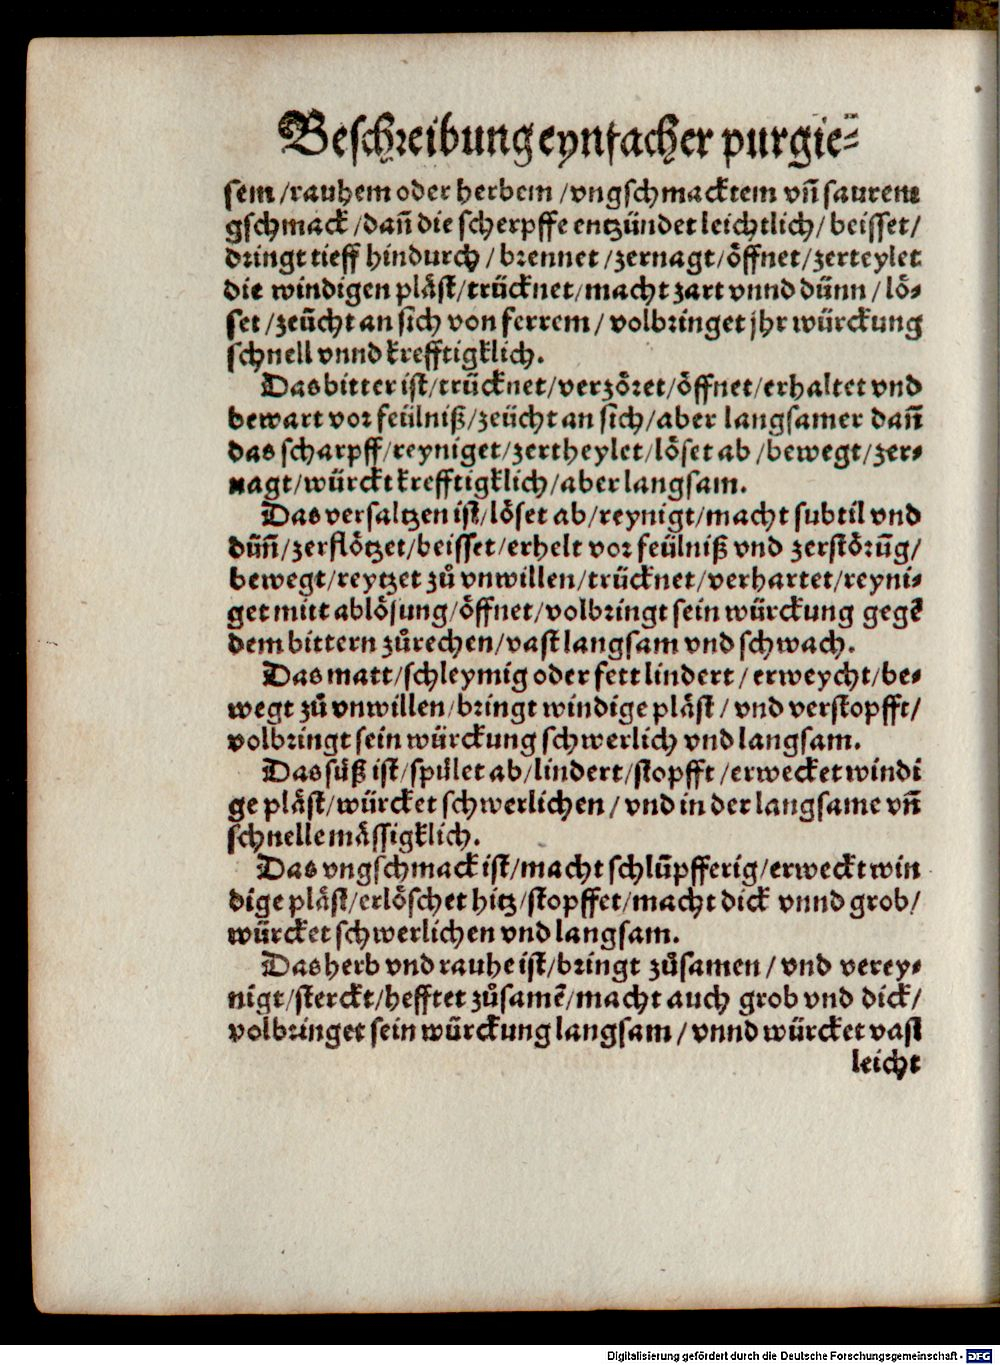 Beschreibung eynfacher purgie⸗
sem /rauhem oder herbem /vngschmacktem vñ saurem
gschmack /dañ die scherpffe entzündet leichtlich/ beisset/
dringt tieff hindurch / brennet /zernagt/öffnet/zerteylet
die windigen pläst/trücknet/macht zart vnnd dünn / lö⸗
set /zeücht an sich von ferrem/ volbringet jhr würckung
schnell vnnd krefftigklich.
Das bitter ist/trücknet/verzöret/öffnet/erhaltet vnd
bewart vor feülniß/zeücht an sich/aber langsamer dañ
das scharpff/reyniget/zertheylet/löset ab /bewegt/zer⸗
nagt/würckt krefftigklich/aber langsam.
Das versaltzen ist/löset ab/reynigt/macht subtil vnd
düñ/zerflötzet/beisset/erhelt vor feülniß vnd zerstörũg/
bewegt/reytzet zů vnwillen/trücknet/verhartet/reyni⸗
get mitt ablösung/öffnet/volbringt sein würckung gegẽ
dem bittern zůrechen/vast langsam vnd schwach.
Das matt/schleymig oder fett lindert / erweycht/be⸗
wegt zů vnwillen/bringt windige pläst / vnd verstopfft/
volbringt sein würckung schwerlich vnd langsam.
Das süß ist/spület ab/lindert/stopfft /erwecket windi
ge pläst/würcket schwerlichen / vnd in der langsame vñ
schnelle mässigklich.
Das vngschmack ist/macht schlüpfferig/erweckt win
dige pläst/erlöschet hitz/stopffet/macht dick vnnd grob/
würcket schwerlichen vnd langsam.
Das herb vnd rauhe ist/bringt zůsamen / vnd verey⸗
nigt/sterckt/hefftet zůsamẽ/macht auch grob vnd dick/
volbringet sein würckung langsam / vnnd würcket vast
leicht
Digitalisierung gefördert durch die Deutsche Forschungsgemeinschaft - DFG